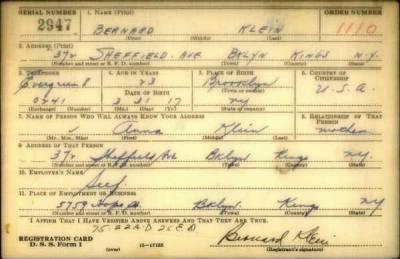 SERIAL NUMBER 1. NAME (Print) ORDER NUMBER
2947 BERNARD KLEIN 1110
(First) (Middle) (Last)
2. ADDRESS (Print)
372 SHEFFIELD AVE BKLYN KINGS N.Y.
(Number and street or R. F. D. number) (Town) (County) (State)
3. TELEPHONE 4. AGE IN YEARS 5. PLACE OF BIRTH 6. COUNTRY OF CITIZENSHIP
Evergreen 8 23 Brooklyn
DATE OF BIRTH (Town or county) U.S.A.
0241 3 31 17 NY
(Exchange) (Number) (Mo.) (Day) (Yr.) (State or country)
7. NAME OF PERSON WHO WILL ALWAYS KNOW YOUR ADDRESS 8. RELATIONSHIP OF THAT PERSON
Anna Klein mother
(Mr., Mrs., Miss) (First) (Middle) (Last)
9. ADDRESS OF THAT PERSON
372 Sheffield Ave Bklyn Kings NY
(Number and street or R. F. D. number) (Town) (County) (State)
10. EMPLOYER'S NAME
11. PLACE OF EMPLOYMENT OR BUSINESS
Bklyn. Kings NY
(Number and street or R. F. D. number) (Town) (County) (State)
I AFFIRM THAT I HAVE VERIFIED ABOVE ANSWERS AND THAT THEY ARE TRUE.
REGISTRATION CARD
D. S. S. Form 1 (over) 16—17105 Bernard Klein